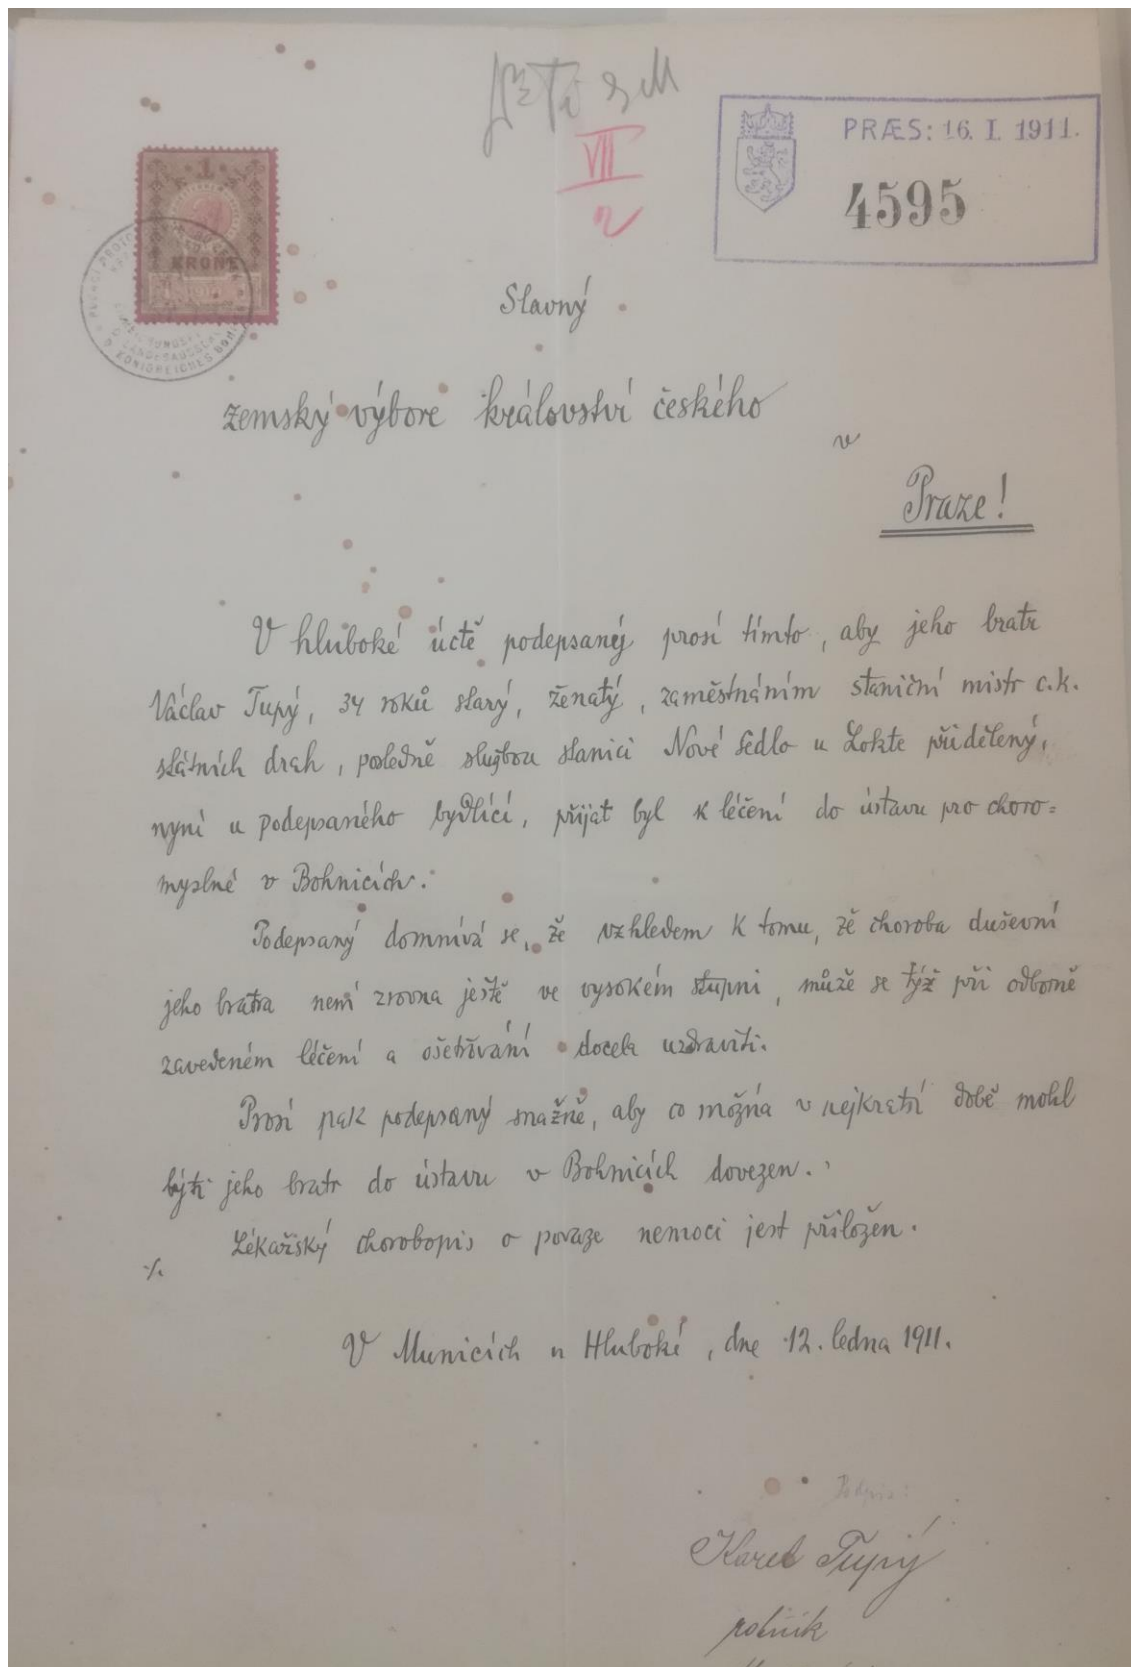 VII
PRÆS: 16. I. 1911.
4595
1
KRONE
Slavný
zemský výbore království českého
v
Praze!
V hluboké úctě podepsaný prosí tímto, aby jeho bratr
Václav Tupý, 34 roků starý, ženatý, zaměstnáním staniční mistr c.k.
státních drah, posledně službou stanici Nové Sedlo u Lokte přidělený,
nyní u podepsaného bydlící, přijat byl k léčení do ústavu pro choro=
myslné v Bohnicích.
Podepsaný domnívá se, že vzhledem k tomu, že choroba duševní
jeho bratra není zrovna ještě ve vysokém stupni, může se týž při odborně
zavedeném léčení a ošetřování docela uzdraviti.
Prosí pak podepsaný snažně, aby co možná v nejkratší době mohl
býti jeho bratr do ústavu v Bohnicích dovezen.
Lékařský chorobopis o povaze nemoci jest přiložen.
·/.
V Municích u Hluboké, dne 12. ledna 1911.
Podpis:
Karel Tupý
rolník